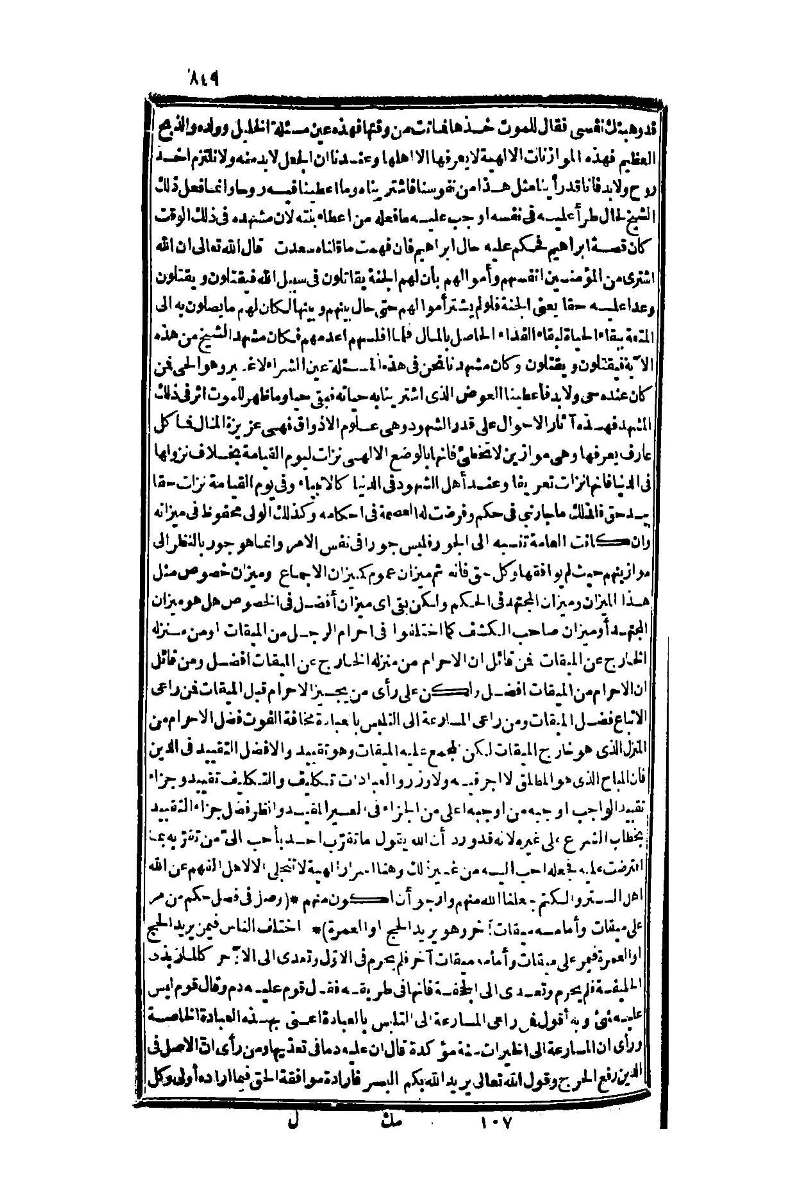 ٨٤٩
قد وهبتك نفسى فقال للموت خذها فماتت من وقتها فهذه عين مسئلة الخليل وولده والذبح
العظيم فهذه الموازنات الالهية لا يعرفها الا اهلها وعندنا ان الجعل لابد منه ولا نلتزم اخذ
روح ولا بد فانا قد رأينا مثل هذا من نفوسنا فاشتريناه وما اعطينا فيه روحا وانما فعل ذلك
الشيخ لحال طرأ عليه فى نفسه اوجب عليه ما فعله من اعطاء بنته لان مشهده فى ذلك الوقت
كان قصة ابراهيم فحكم عليه حال ابراهيم فان فهمت ما قلناه سعدت قال الله تعالى ان الله
اشترى من المؤمنين انفسهم وأموالهم بأن لهم الجنة يقاتلون فى سبيل الله فيقتلون ويقتلون
وعدا عليه حقا يعنى الجنة فلو لم يشتر أموالهم حتى حال بينهم وبينها لكان لهم ما يصلون به الى
المتعة ببقاء الحياة لبقاء الفداء الحاصل بالمال فلما افلسهم اعدمهم فكان مشهد الشيخ من هذه
الآية فيقتلون ويقتلون وكان مشهدنا نحن فى هذه المسئلة عين الشراء لا غير وهو الحى فمن
كان عنده حى ولا بد فأعطينا العوض الذى اشترينا به حياته فبقى حيا وما ظهر للموت اثر فى ذلك
المشهد فهذه آثار الاحوال على قدر الشهود وهى علوم الاذواق فهى عزيزة المنال فما كل
عارف يعرفها وهى موازين لا تخطئ فانها بالوضع الالهى نزلت ليوم القيامة بخلاف نزولها
فى الدنيا فانها نزلت تعريفا وعند أهل الشهود فى الدنيا كالانبياء وفى يوم القيامة نزلت حقا
بيد حق فلذلك ما جار نبى فى حكم وفرضت له العصمة فى احكامه وكذلك الولى محفوظ فى ميزانه
وان كانت العامة تنسبه الى الجور فليس جورا فى نفس الامر وانما هو جور بالنظر الى
موازينهم حيث لم يوافقها وكل حق فانه ثم ميزان عموم كميزان الاجماع وميزان خصوص مثل
هذا الميزان وميزان المجتهد فى الحكم ولكن بقى اى ميزان أفضل فى الخصوص هل هو ميزان
المجتهد أو ميزان صاحب الكشف كما اختلفوا فى احرام الرجل من الميقات او من منزله
الخارج عن الميقات فمن قائل ان الاحرام من منزله الخارج عن الميقات افضل ومن قائل
ان الاحرام من الميقات افضل ولكن على رأى من يجيز الاحرام قبل الميقات فمن راعى
الاتباع فضل الميقات ومن راعى المسارعة الى التلبس بالعبادة مخافة الفوت فضل الاحرام من
المنزل الذى هو خارج الميقات لكن المجمع عليه الميقات وهو تقييد والافضل التقييد فى الدين
فان المباح الذى هو المطلق لا اجر فيه ولا وزر والعبادات تكليف والتكليف تقييد وجزاء
تقييد الواجب اوجبه من اوجبه اعلى من الجزاء فى المقيد وانظر فضل جزاء التقييد
بخطاب الشرع على غيره لانه قد ورد أن الله يقول ما تقرب احد بأحب الى من تقربه بما
افترضت عليه فجعله احب اليه من غير ذلك وهنا اسرار الهية لا تنجلى الا لاهل الفهم عن الله
اهل الستر والكتم جعلنا الله منهم وارجو أن اكون منهم *(وصل فى فصل حكم من مر
على ميقات وأمامه ميقات آخر وهو يريد الحج او العمرة)* اختلف الناس فيمن يريد الحج
او العمرة فيمر على ميقات وأمامه ميقات آخر فلم يحرم فى الاول وتعدى الى الآخر كالمار بذى
الحليفة فلم يحرم وتعدى الى الجحفة فانها فى طريقه فقال قوم عليه دم وقال قوم ليس
عليه شئ وبه أقول فمن راعى المسارعة الى التلبس بالعبادة اعنى بهذه العبادة الخاصة
ورأى ان المسارعة الى الخيرات سنة مؤكدة قال ان عليه دما فى تعديها ومن رأى ان الاصل فى
الدين رفع الحرج وقول الله تعالى يريد الله بكم اليسر فارادة موافقة الحق فيما اراده أولى وكل
١٠٧ مك ل